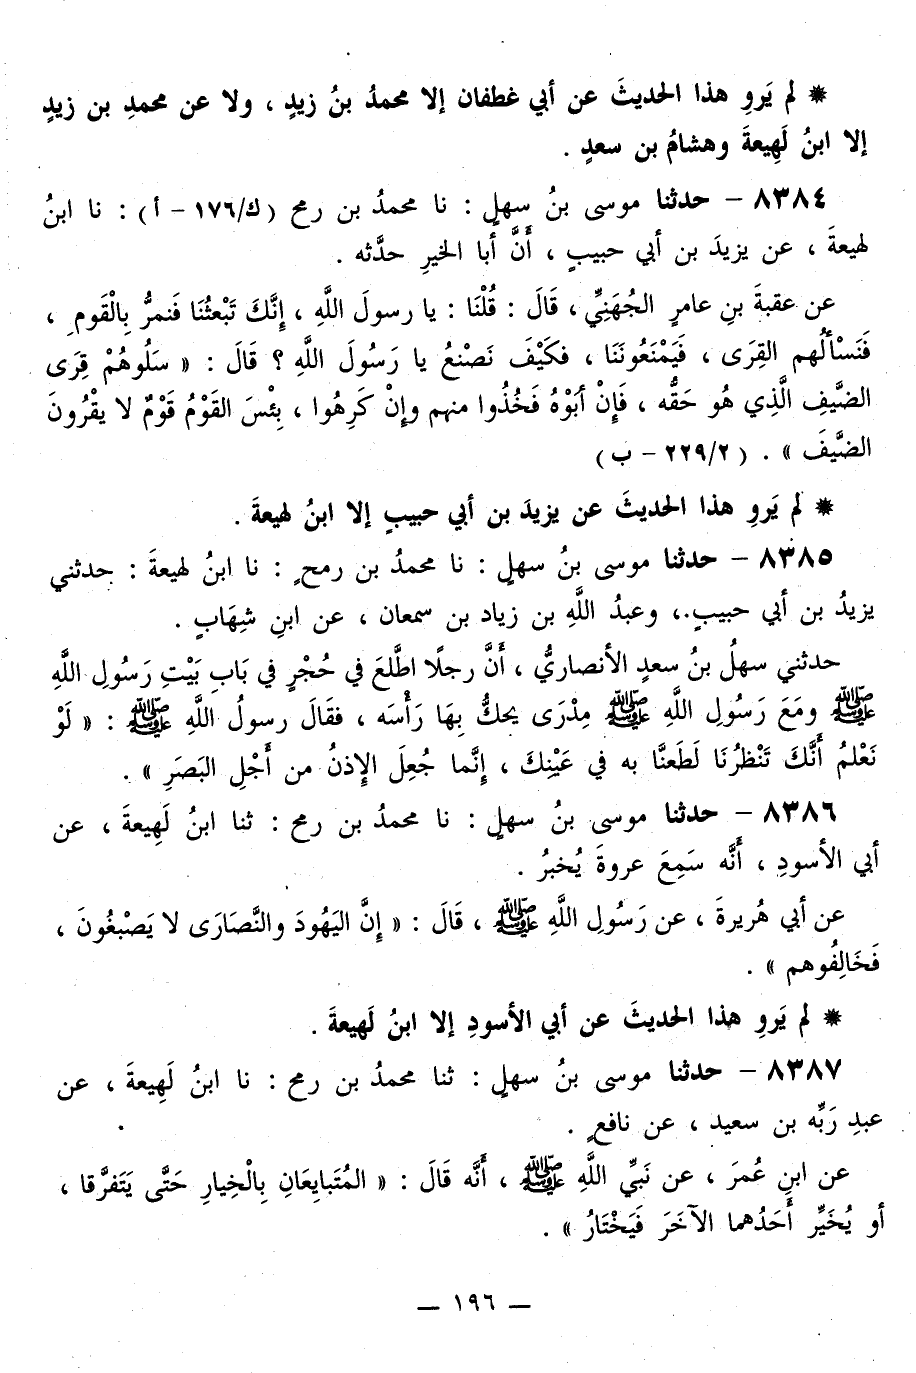 * لم يَروِ هذا الحديثَ عن أبي غطفان إلا محمدُ بنُ زيدٍ ، ولا عن محمدِ بن زيدٍ
إلا ابنُ لَهِيعةَ وهشامُ بن سعدٍ .
٨٣٨٤ – حدثنا موسى بنُ سهلٍ : نا محمدُ بن رمح (ك/١٧٦ – أ) : نا ابنُ
لهيعةَ ، عن يزيدَ بن أبي حبيبٍ ، أَنَّ أبا الخيرِ حدَّثه .
عن عقبةَ بنِ عامرٍ الجُهَنِيِّ ، قَالَ : قُلْنَا : يا رسولَ اللَّهِ ، إِنَّكَ تَبْعثُنَا فَنمرُّ بِالْقَومِ ،
فَنَسْأَلُهم القِرَى ، فَيَمْنَعُونَنَا ، فكَيْفَ نَصْنَعُ يا رَسُولَ اللَّهِ ؟ قَالَ : « سَلُوهُمْ قِرَى
الضيَّفِ الَّذِي هُو حَقُّه ، فَإِنْ أَبَوْهُ فَخُذُوا منهم وإِنْ كَرِهُوا ، بِئْسَ القَوْمُ قَوْمٌ لا يقْرُونَ
الضيَّفَ » . (٢٢٩/٢ – ب)
* لم يَروِ هذا الحديثَ عن يزيدَ بن أبي حبيبٍ إلا ابنُ لهيعةَ .
٨٣٨٥ – حدثنا موسى بنُ سهلٍ : نا محمدُ بن رمحٍ : نا ابنُ لهيعةَ : حدثني
يزيدُ بن أبي حبيبٍ.، وعبدُ اللَّهِ بن زياد بن سمعان ، عن ابنِ شِهَابٍ .
حدثني سهلُ بنُ سعدٍ الأنصاريُّ ، أَنَّ رجلًا اطَّلعَ في حُجْرٍ في بَابِ بَيْتِ رَسُولِ اللَّهِ
ﷺ ومَعَ رَسُولِ اللَّهِ ﷺ مِدْرَى يحكُّ بِهَا رَأْسَه ، فقَالَ رسولُ اللَّهِ ﷺ : « لَوْ
نَعْلمُ أَنَّكَ تَنْظرُنَا لَطَعنَّا به في عَيْنِكَ ، إِنَّما جُعِلَ الإِذنُ من أَجْلِ البَصَرِ » .
٨٣٨٦ – حدثنا موسى بنُ سهلٍ : نا محمدُ بن رمح : ثنا ابنُ لَهِيعةَ ، عن
أبي الأسودِ ، أَنَّه سَمِعَ عروةَ يُخبرُ .
عن أبي هُريرةَ ، عن رَسُولِ اللَّهِ ﷺ ، قَالَ : « إِنَّ اليَهُودَ والنَّصَارَى لا يَصْبغُونَ ،
فَخَالِفُوهم » .
* لم يَروِ هذا الحديثَ عن أبي الأسودِ إلا ابنُ لَهيعةَ .
٨٣٨٧ – حدثنا موسى بنُ سهلٍ : ثنا محمدُ بن رمح : نا ابنُ لَهِيعةَ ، عن
عبدِ رَبِّه بن سعيد ، عن نافعٍ .
عن ابنِ عُمرَ ، عن نَبيِّ اللَّهِ ﷺ ، أَنَّه قَالَ : « المُتَبايِعَانِ بِالْخِيارِ حَتَّى يَتَفرَّقا ،
أو يُخَيِّر أَحَدُهما الآخَرَ فَيَخْتَارُ » .
— ١٩٦ —